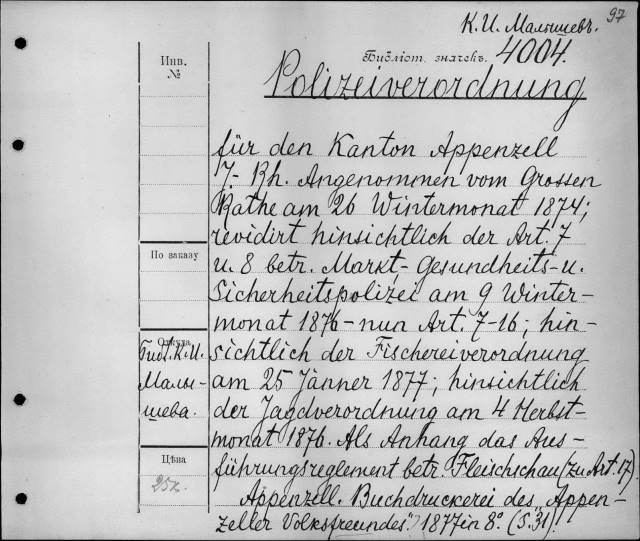 97
К. И. Малышевъ.
Библіот. значекъ. 4004.
Инв.
№
Polizeiverordnung
für den Kanton Appenzell
J.- Rh. Angenommen vom Grossen
Rathe am 26 Wintermonat 1874;
revidirt hinsichtlich der Art. 7
По заказу
u. 8 betr. Markt- Gesundheits- u.
Sicherheitspolizei am 9 Winter-
monat 1876 - nun Art. 7-16; hin-
Откуда
Библ. К. И.
Малы-
шева.
sichtlich der Fischereiverordnung
am 25 Jänner 1877; hinsichtlich
der Jagdverordnung am 4 Herbst-
monat 1876. Als Anhang das Aus-
Цѣна
25к.
führungsreglement betr. Fleischschau (zu Art. 17).
Appenzell. Buchdruckerei des „Appen-
zeller Volksfreundes". 1877 in 8º. (S. 31).